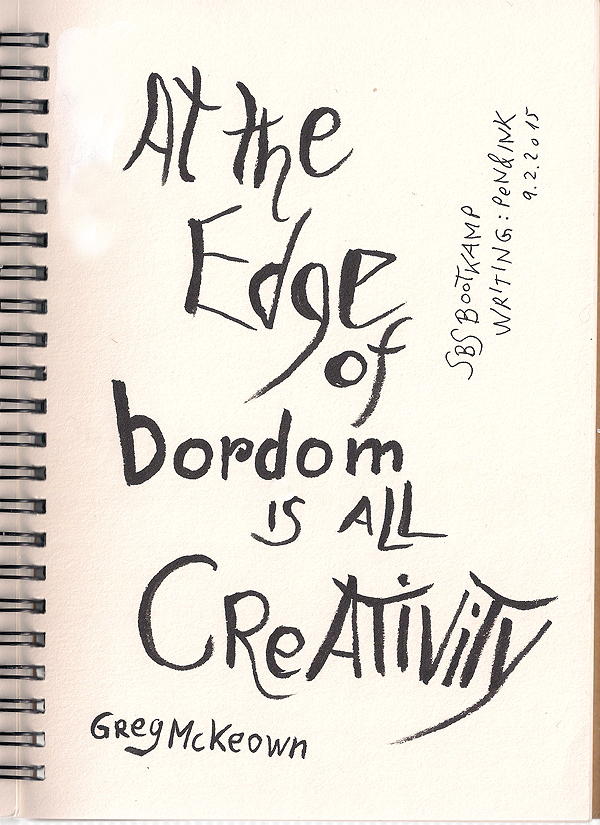 At the
Edge
of
bordom
is ALL
CReATiViTy
GReg McKeown
SBS BootKAMP
WRITING: PeN&INK
9.2.2015